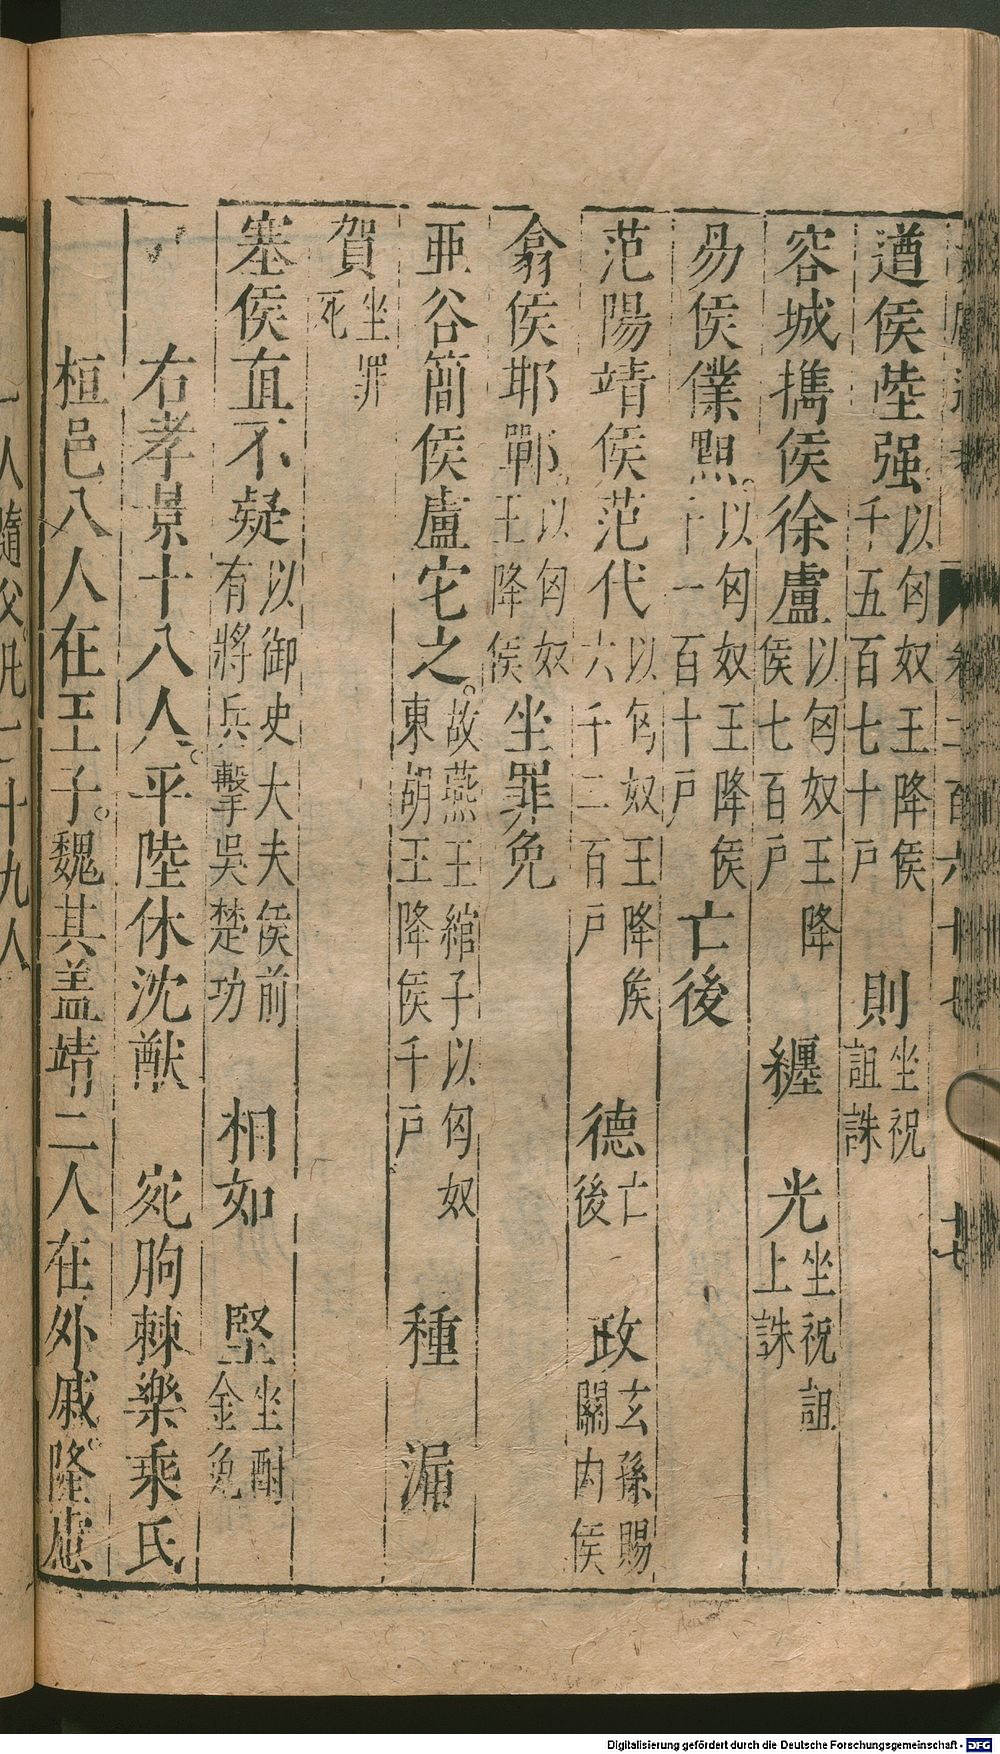 遒侯陸强以匈奴王降侯千五百七十戶 則坐祝詛誅
容城攜侯徐盧以匈奴王降侯七百戶 纏 光坐祝詛上誅
易侯僕䵍以匈奴王降侯千一百十戶 亡後
范陽靖侯范代以匈奴王降侯六千二百戶 德亡後 政玄孫賜關內侯
翕侯邯鄲以匈奴王降侯坐罪免
亜谷簡侯盧它之故燕王綰子以匈奴東胡王降侯千戶 種 漏
賀坐罪死
塞侯直不疑以御史大夫侯前有將兵擊吳楚功 相如 堅坐酎金免
右孝景十八人平陸休沈猷 宛朐棘樂乘氏
桓邑八人在王子魏其盖靖二人在外戚隆慮
一人隨父凡二十九人
卷二百六十七
十七
Digitalisierung gefördert durch die Deutsche Forschungsgemeinschaft - DFG